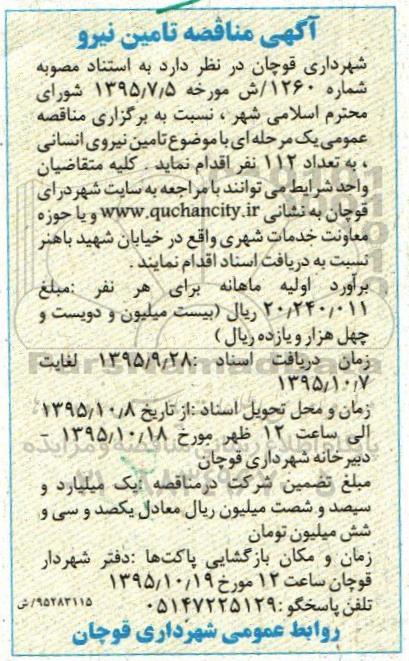 آگهی مناقصه تامین نیرو
شهرداری قوچان در نظر دارد به استناد مصوبه
شماره ۱۲۶۰/ش مورخه ۱۳۹۵٫۷٫۵ شورای
محترم اسلامی شهر ، نسبت به برگزاری مناقصه
عمومی یک مرحله ای با موضوع تامین نیروی انسانی
، به تعداد ۱۱۲ نفر اقدام نماید . کلیه متقاضیان
واحد شرایط می توانند با مراجعه به سایت شهردرای
قوچان به نشانی www.quchancity.ir و یا حوزه
معاونت خدمات شهری واقع در خیابان شهید باهنر
نسبت به دریافت اسناد اقدام نمایند .
برآورد اولیه ماهانه برای هر نفر :مبلغ
۲۰٫۲۴۰٫۰۱۱ ریال (بیست میلیون و دویست و
چهل هزار و یازده ریال )
زمان دریافت اسناد :۱۳۹۵٫۹٫۲۸ لغایت
۱۳۹۵٫۱۰٫۷
زمان و محل تحویل اسناد :از تاریخ ۱۳۹۵٫۱۰٫۸
الی ساعت ۱۲ ظهر مورخ ۱۳۹۵٫۱۰٫۱۸ –
دبیرخانه شهرداری قوچان
مبلغ تضمین شرکت درمناقصه :یک میلیارد و
سیصد و شصت میلیون ریال معادل یکصد و سی و
شش میلیون تومان
زمان و مکان بازگشایی پاکت‌ها :دفتر شهردار
قوچان ساعت ۱۲ مورخ ۱۳۹۵٫۱۰٫۱۹
تلفن پاسخگو : ۰۵۱۴۷۲۲۵۱۲۹
۹۵۲۸۳۱۱۵/ش
روابط عمومی شهرداری قوچان